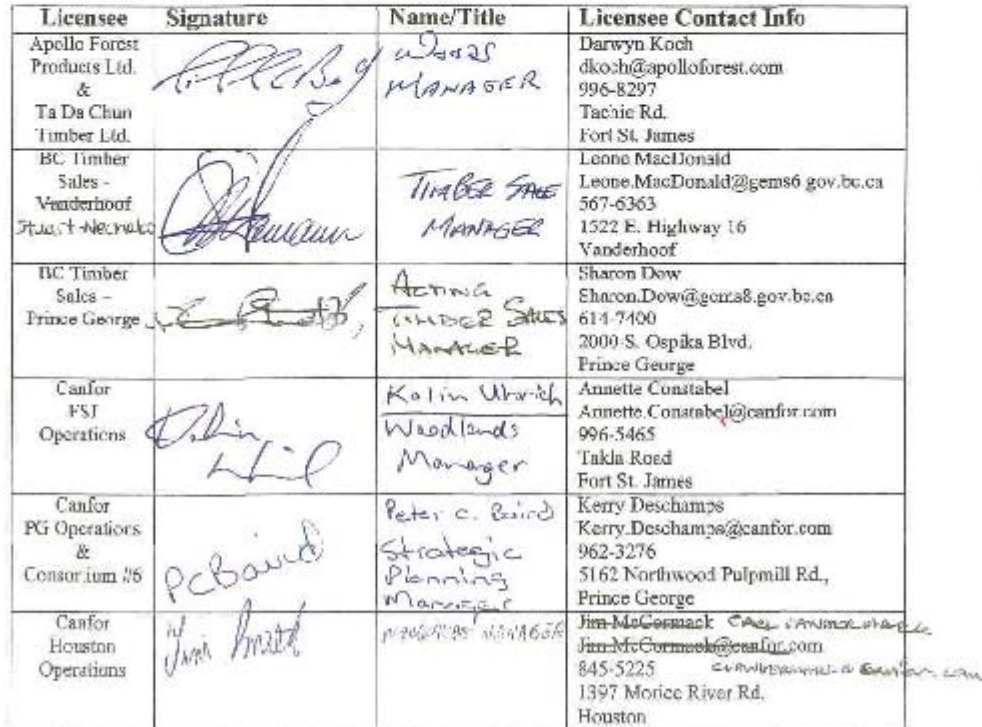 Licensee Signature Name/Title Licensee Contact Info
Apollo Forest
Products Ltd.
&
Ta Da Chun
Timber Ltd.
WOODS
MANAGER
Darwyn Koch
dkoch@apolloforest.com
996-8297
Tachie Rd.
Fort St. James
BC Timber
Sales -
Vanderhoof
Stuart-Nechako
TIMBER SALE
MANAGER
Leone MacDonald
Leone.MacDonald@gems6.gov.bc.ca
567-6363
1522 E. Highway 16
Vanderhoof
BC Timber
Sales –
Prince George
ACTING
TIMBER SALES
MANAGER
Sharon Dow
Sharon.Dow@gems8.gov.bc.ca
614-7400
2000 S. Ospika Blvd.
Prince George
Canfor
FSJ
Operations
Kalin
Woodlands
Manager
Annette Constabel
Annette.Constabel@canfor.com
996-5465
Takla Road
Fort St. James
Canfor
PG Operations
&
Consortium #6
PCBaird
Peter C. Baird
Strategic
Planning
Manager
Kerry Deschamps
Kerry.Deschamps@canfor.com
962-3276
5162 Northwood Pulpmill Rd.,
Prince George
Canfor
Houston
Operations
MANAGER
Jim McCormack
Jim.McCormack@canfor.com
845-5225
1397 Morice River Rd.
Houston